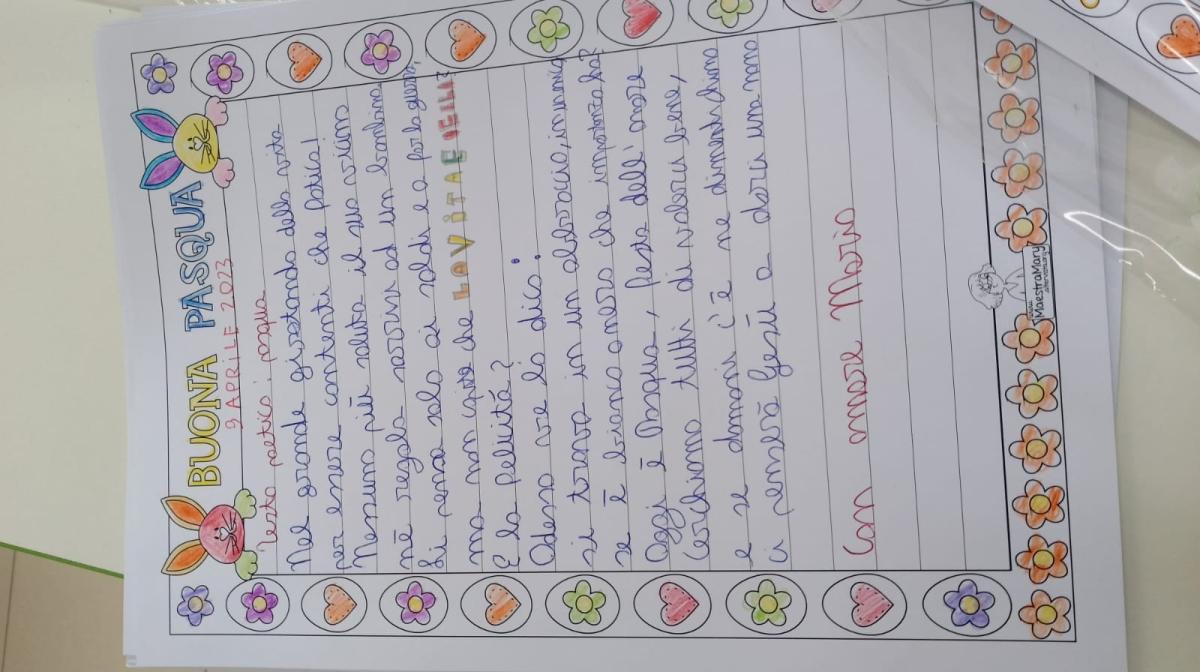 BUONA PASQUA
9 APRILE 2023
Testo poetico: pasqua
Nel grande girotondo della vita
per essere contenti che fatica!
Nessuno più saluta il suo vicino
nè regala sorrisi ad un bambino
Si pensa solo ai soldi e a far la guerra,
ma non capite che LA VITA È BELLA?
E la felicità?
Adesso ve lo dico:
si trova in un abbraccio, in un amico
se è bianco o nero che importanza ha?
Oggi è Pasqua, festa dell'amore
Cerchiamo tutti di volerci bene,
e se domani c'è ne dimentichiamo
ci penserà Gesù a darci una mano
Con amore Mario
www.
MaestraMary
altervista.org